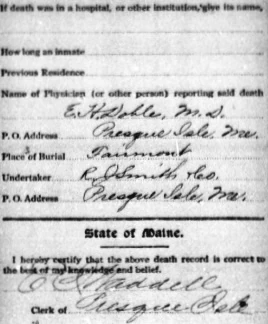 If death was in a hospital, or other institution, give its name,
How long an inmate
Previous Residence
Name of Physician (or other person) reporting said death
E. H. Doble, M. D.
P. O. Address Presque Isle, Me.
Place of Burial Fairmont
Undertaker R. J. Smith & Co.
P. O. Address Presque Isle, Me.
State of Maine.
I hereby certify that the above death record is correct to
the best of my knowledge and belief.
Waddell
Clerk of Presque Isle